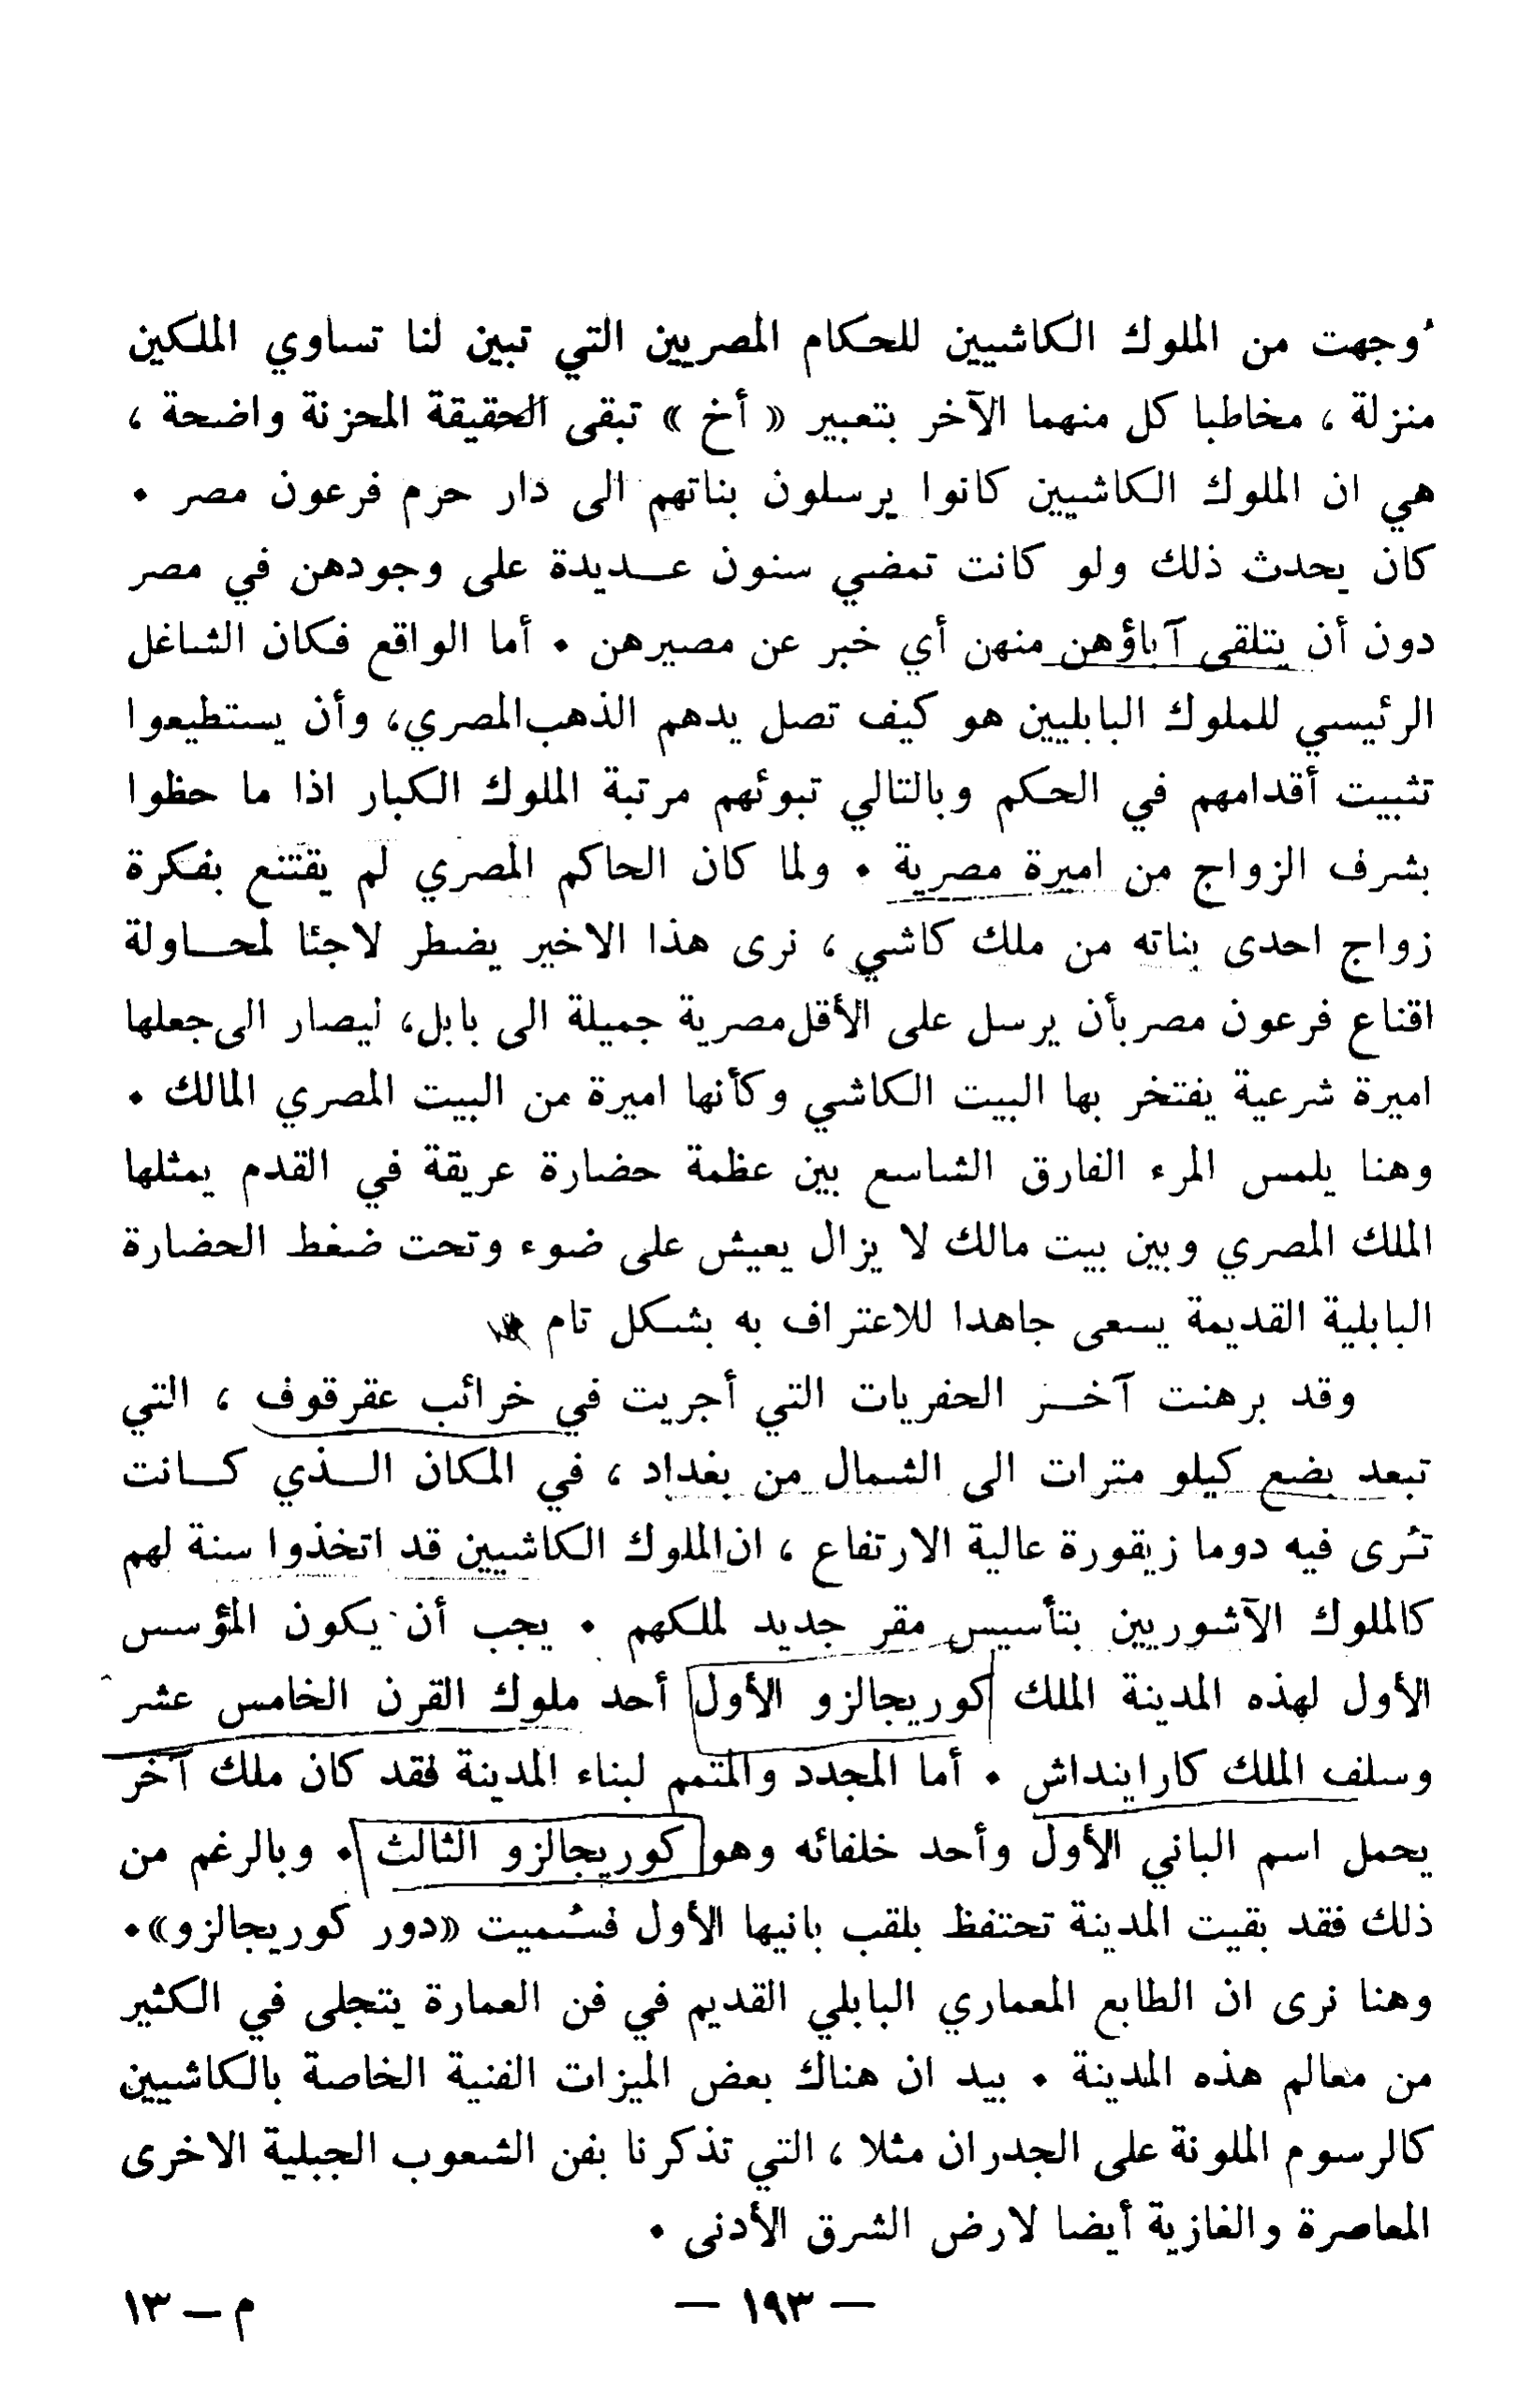 ُوجهت من الملوك الكاشيين للحكام المصريين التي تبين لنا تساوي الملكين
منزلة ، مخاطبا كل منهما الآخر بتعبير « أخ » تبقى الحقيقة المحزنة واضحة ،
هي ان الملوك الكاشيين كانوا يرسلون بناتهم الى دار حرم فرعون مصر ٠
كان يحدث ذلك ولو كانت تمضي سنون عـــديدة على وجودهن في مصر
دون أن يتلقى آباؤهن منهن أي خبر عن مصيرهن ٠ أما الواقع فكان الشاغل
الرئيسي للملوك البابليين هو كيف تصل يدهم الذهب المصري، وأن يستطيعوا
تثبيت أقدامهم في الحكم وبالتالي تبوئهم مرتبة الملوك الكبار اذا ما حظوا
بشرف الزواج من اميرة مصرية ٠ ولما كان الحاكم المصري لم يقتنع بفكرة
زواج احدى بناته من ملك كاشي ، نرى هذا الاخير يضطر لاجئا لمحـــاولة
اقناع فرعون مصر بأن يرسل على الأقل مصرية جميلة الى بابل، ليصار الى جعلها
اميرة شرعية يفتخر بها البيت الكاشي وكأنها اميرة من البيت المصري المالك ٠
وهنا يلمس المرء الفارق الشاسع بين عظمة حضارة عريقة في القدم يمثلها
الملك المصري وبين بيت مالك لا يزال يعيش على ضوء وتحت ضغط الحضارة
البابلية القديمة يسعى جاهدا للاعتراف به بشكل تام
وقد برهنت آخـــر الحفريات التي أجريت في خرائب عقرقوف ، التي
تبعد بضع كيلو مترات الى الشمال من بغداد ، في المكان الـــذي كـــانت
تـُرى فيه دوما زيقورة عالية الارتفاع ، ان الملوك الكاشيين قد اتخذوا سنة لهم
كالملوك الآشوريين بتأسيس مقر جديد لملكهم ٠ يجب أن يكون المؤسس
الأول لهذه المدينة الملك كوريجالزو الأول أحد ملوك القرن الخامس عشر
وسلف الملك كاراينداش ٠ أما المجدد والمتمم لبناء المدينة فقد كان ملك آخر
يحمل اسم الباني الأول وأحد خلفائه وهو كوريجالزو الثالث ٠ وبالرغم من
ذلك فقد بقيت المدينة تحتفظ بلقب بانيها الأول فسُميت «دور كوريجالزو»٠
وهنا نرى ان الطابع المعماري البابلي القديم في فن العمارة يتجلى في الكثير
من معالم هذه المدينة ٠ بيد ان هناك بعض الميزات الفنية الخاصة بالكاشيين
كالرسوم الملونة على الجدران مثلا ، التي تذكرنا بفن الشعوب الجبلية الاخرى
المعاصرة والغازية أيضا لارض الشرق الأدنى ٠
— ١٩٣ —
م — ١٣